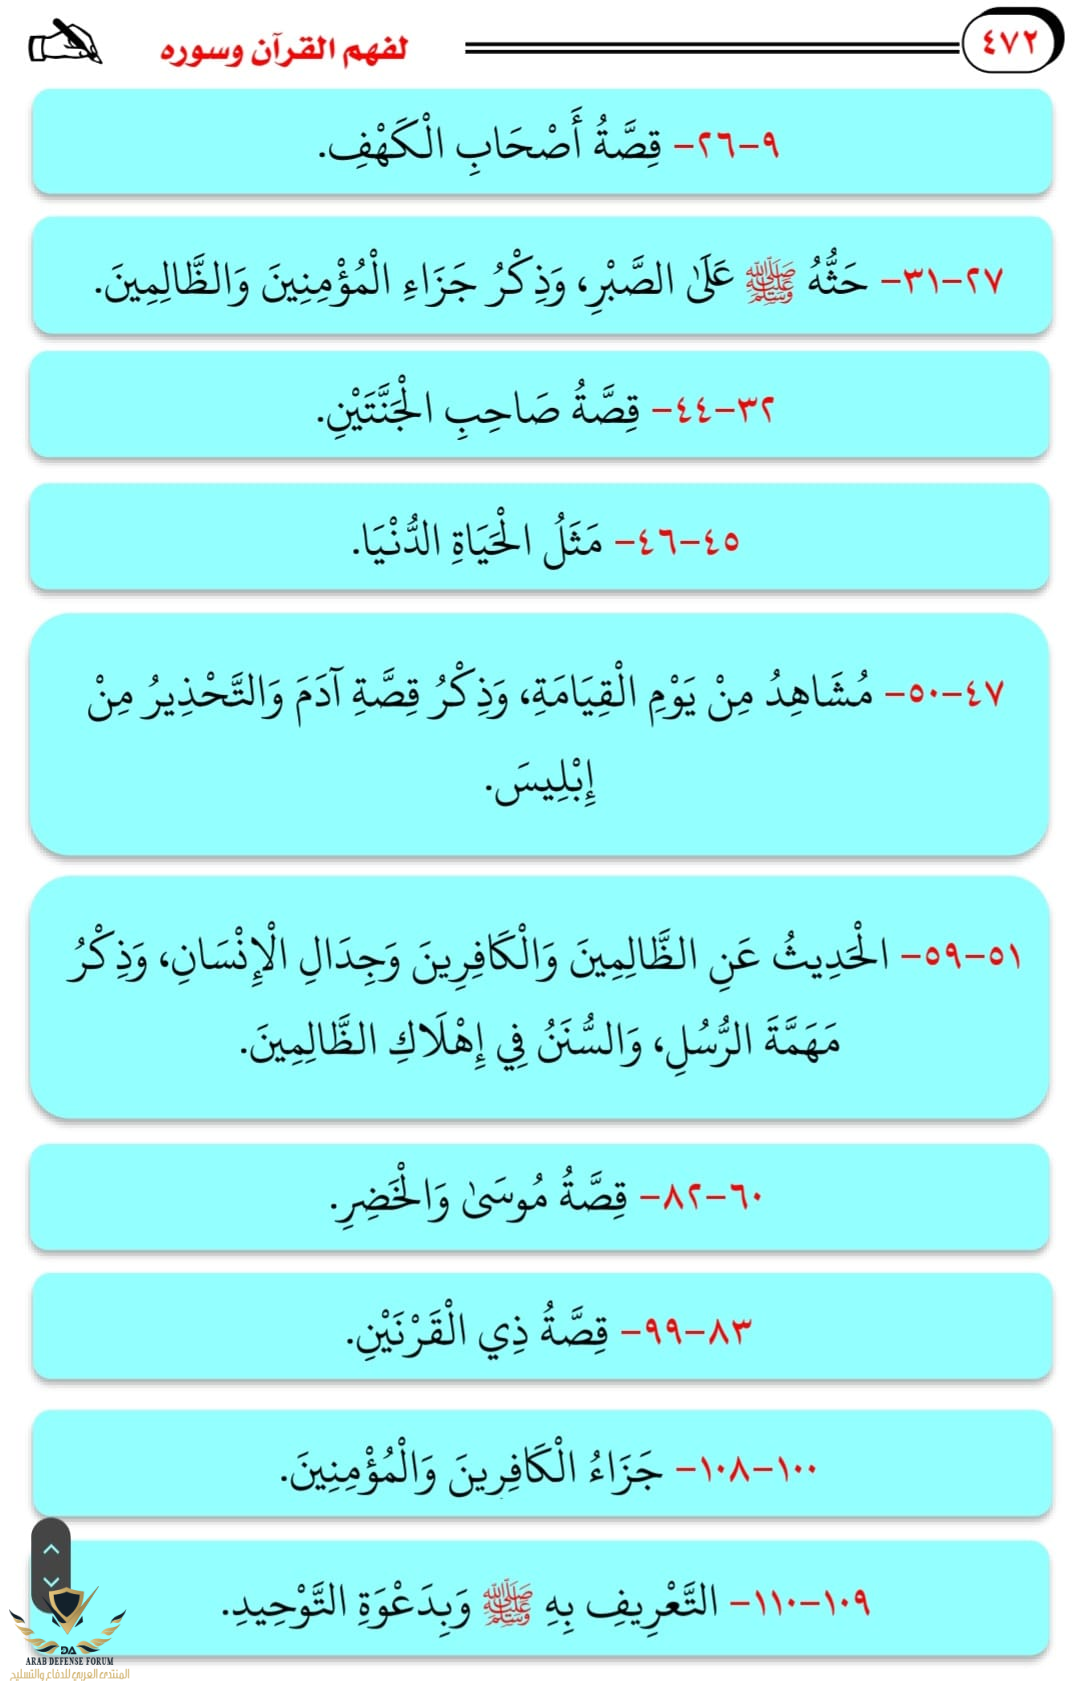 ٤٧٢
لفهم القرآن وسوره
٩-٢٦- قِصَّةُ أَصْحَابِ الْكَهْفِ.
٢٧-٣١- حَثُّهُ ﷺ عَلَىٰ الصَّبْرِ، وَذِكْرُ جَزَاءِ الْمُؤْمِنِينَ وَالظَّالِمِينَ.
٣٢-٤٤- قِصَّةُ صَاحِبِ الْجَنَّتَيْنِ.
٤٥-٤٦- مَثَلُ الْحَيَاةِ الدُّنْيَا.
٤٧-٥٠- مُشَاهِدُ مِنْ يَوْمِ الْقِيَامَةِ، وَذِكْرُ قِصَّةِ آدَمَ وَالتَّحْذِيرُ مِنْ
إِبْلِيسَ.
٥١-٥٩- الْحَدِيثُ عَنِ الظَّالِمِينَ وَالْكَافِرِينَ وَجِدَالِ الْإِنْسَانِ، وَذِكْرُ
مَهَمَّةَ الرُّسُلِ، وَالسُّنَنُ فِي إِهْلَاكِ الظَّالِمِينَ.
٦٠-٨٢- قِصَّةُ مُوسَىٰ وَالْخَضِرِ.
٨٣-٩٩- قِصَّةُ ذِي الْقَرْنَيْنِ.
١٠٠-١٠٨- جَزَاءُ الْكَافِرِينَ وَالْمُؤْمِنِينَ.
١٠٩-١١٠- التَّعْرِيفِ بِهِ ﷺ وَبِدَعْوَةِ التَّوْحِيدِ.
DA
ARAB DEFENSE FORUM
المنتدى العربي للدفاع والتسليح